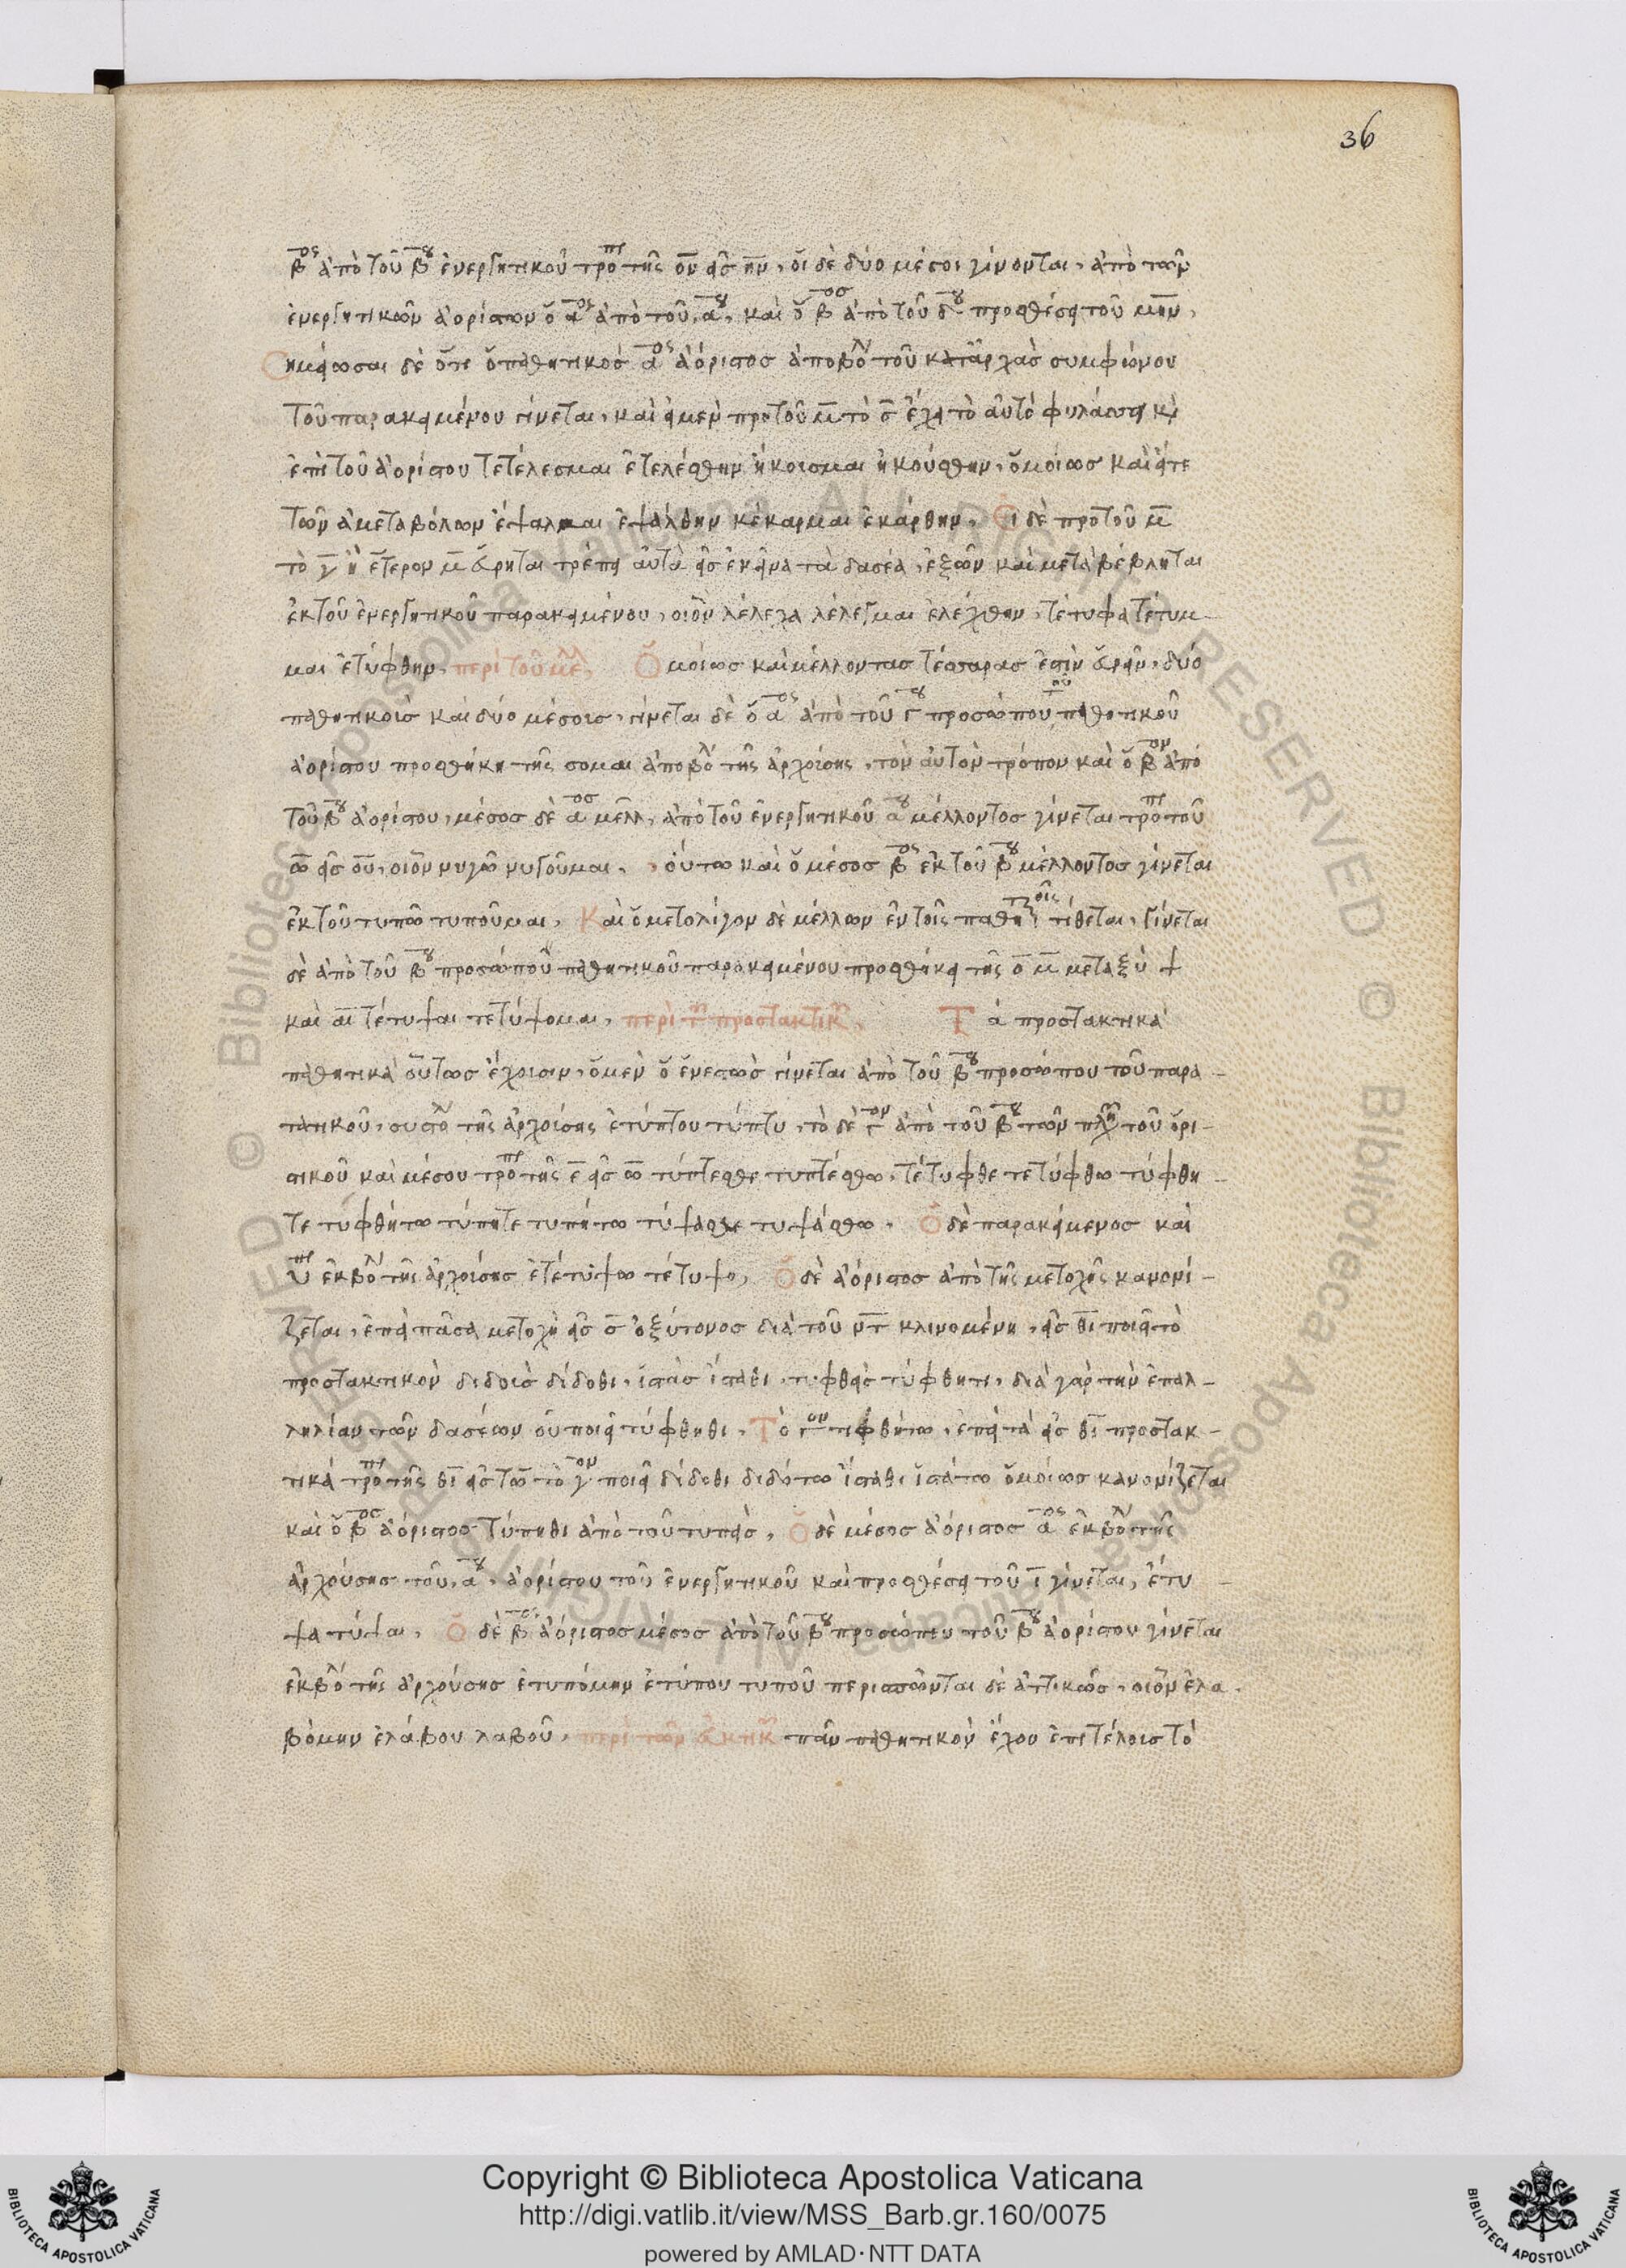 36
β̅ος ἀπὸ τοῦ β̅ου ἐνεργητικοῦ τροπῇ τῆς ον εἰς ην, οἱ δὲ δύο μέσοι γίνονται, ἀπὸ τῶν
ἐνεργητικῶν ἀορίστων ὁ α̅ος ἀπὸ τοῦ, α̅ου, καὶ ὁ β̅ος ἀπὸ τοῦ β̅ου προσθέσει τοῦ μην,
Σημείωσαι δὲ ὅτι ὁ παθητικὸσ α̅ος ἀόριστοσ ἀποβολ τοῦ καταρχὰσ συμφώνου
τοῦ παρακειμένου γίνεται, καὶ εἰ μεν προ τοῦ μ̅ τὸ σ̅ ἔχει τὸ αὐτὸ φυλάσσει κ
ἐπὶ τοῦ ἀορίστου τετέλεσμαι ἐτελέσθην ἤκουσμαι ἠκούσθην, ὁμοίωσ καὶ εἴτε
τῶν ἀμεταβόλων ἔψαλμαι ἐψάλθην κέκαρμαι ἐκάρθην. Εἰ δὲ προ τοῦ μ̅
τὸ γ̅ ἢ ἕτερον μ̅ εὕρηται τρέπει αὐτὰ εἰς ἐκεῖνα τὰ δασέα, ἐξ ὧν καὶ μεταβέβληται
ἐκ τοῦ ἐνεργητικοῦ παρακειμένου, οἷον λέλεχα λέλεγμαι ἐλέχθην, τέτυφα τέτυμ-
μαι ἐτύφθην. περὶ τοῦ μελλ Ὁμοίωσ καὶ μέλλοντασ τέσσαρασ ἐστὶν εὑρεῖν, δύο
παθητικοὺσ καὶ δύο μέσουσ, γίνεται δὲ ὁ α̅ος ἀπὸ τοῦ γ̅ου προσώπου παθητικοῦ
ἀορίστου προσθήκη τῆς σομαι ἀποβολ τῆς ἀρχούσης, τὸν αὐτὸν τρόπον καὶ ὁ β̅ον ἀπὸ
τοῦ β̅ου ἀορίστου, μέσοσ δὲ α̅οσ μελλ, ἀπὸ τοῦ ἐνεργητικοῦ α̅ου μέλλοντοσ γίνεται τροπῇ τοῦ
ω̅ εἰς ου, οἷον νυγῶ νυγοῦμαι, οὕτω καὶ ὁ μέσοσ β̅ος ἐκ τοῦ β̅ου μέλλοντοσ γίνεται
ἐκ τοῦ τυπῶ τυποῦμαι, Καὶ ὁ μετολίγον δὲ μέλλων ἐν τοῖς παθητικοῖς τίθεται, Γίνεται
δὲ ἀπὸ τοῦ β̅ου προσώπου παθητικοῦ παρακειμένου προσθήκῃ τῆς ο̅ μ̅ μεταξὺ ψ
καὶ αι τέτυψαι τετύψομαι, περὶ τῶν προστακτικῶν. Τὰ προστακτικὰ
παθητικὰ οὕτωσ ἔχουσιν, ὁ μὲν ὁ ἐνεστὼσ γίνεται ἀπὸ τοῦ β̅ου προσώπου τοῦ παρα-
τατικοῦ, συστολ τῆς ἀρχούσης ἐτύπτου τύπτου, τὸ δὲ γ̅ον ἀπὸ τοῦ β̅ου τῶν πλη τοῦ ὁρι-
στικοῦ καὶ μέσου τροπῇ τῆς ε̅ εἰς ω̅ τύπτεσθε τυπτέσθω. τέτυφθε τετύφθω τύφθη-
τε τυφθήτω τύπητε τυπήτω τύψασθε τυψάσθω. Ὁ δὲ παρακείμενοσ καὶ
ὑπ ἐκβολ τῆς ἀρχούσησ ἐτέτυψο τέτυψο, Ὁ δὲ ἀόριστοσ ἀπὸ τῆς μετοχῆς κανονί-
ζεται, ἐπεὶ πᾶσα μετοχὴ εἰς σ̅ ὀξύτονοσ διὰ τοῦ ντ κλινομένη, εἰς θι ποιεῖ τὸ
προστακτικὸν διδοὺσ δίδοθι, ἱστὰσ ἵσταθι, τυφθεὶσ τύφθητι, διὰ γὰρ τὴν ἐπαλ-
ληλίαν τῶν δασέων οὐ ποιεῖ τύφθηθι, Τὸ γ̅ον τυφθήτω, ἐπεὶ τὰ εἰς θι προστακ-
τικὰ τροπῇ τῆς θι εἰς τω τὸ γ̅ον ποιεῖ δίδοθι διδότω ἵσταθι ἱστάτω ὁμοίωσ κανονίζεται
καὶ ὁ β̅οσ ἀόριστοσ τύπηθι ἀπὸ τοῦ τυπεὶσ, Ὁ δὲ μέσοσ ἀόριστοσ α̅ος ἐκβολ τῆς
ἀρχούσησ τοῦ, α̅ου, ἀορίστου τοῦ ἐνεργητικοῦ καὶ προσθέσει τοῦ ι̅ γίνεται, ἔτυ-
ψα τύψαι, Ὁ δὲ β̅ος ἀόριστοσ μέσοσ ἀπὸ τοῦ β̅ου προσώπου τοῦ β̅ου ἀορίστου γίνεται
ἐκβολ τῆς ἀρχούσησ ἐτυπόμην ἐτύπου τυποῦ περισπῶνται δὲ ἀττικῶσ, οἷον ἐλα-
βόμην ἐλάβου λαβοῦ, περὶ τῶν εὐκτικῶν πᾶν παθητικὸν ἔχον ἐπὶ τέλουσ τὸ
Copyright © Biblioteca Apostolica Vaticana
http://digi.vatlib.it/view/MSS_Barb.gr.160/0075
powered by AMLAD·NTT DATA